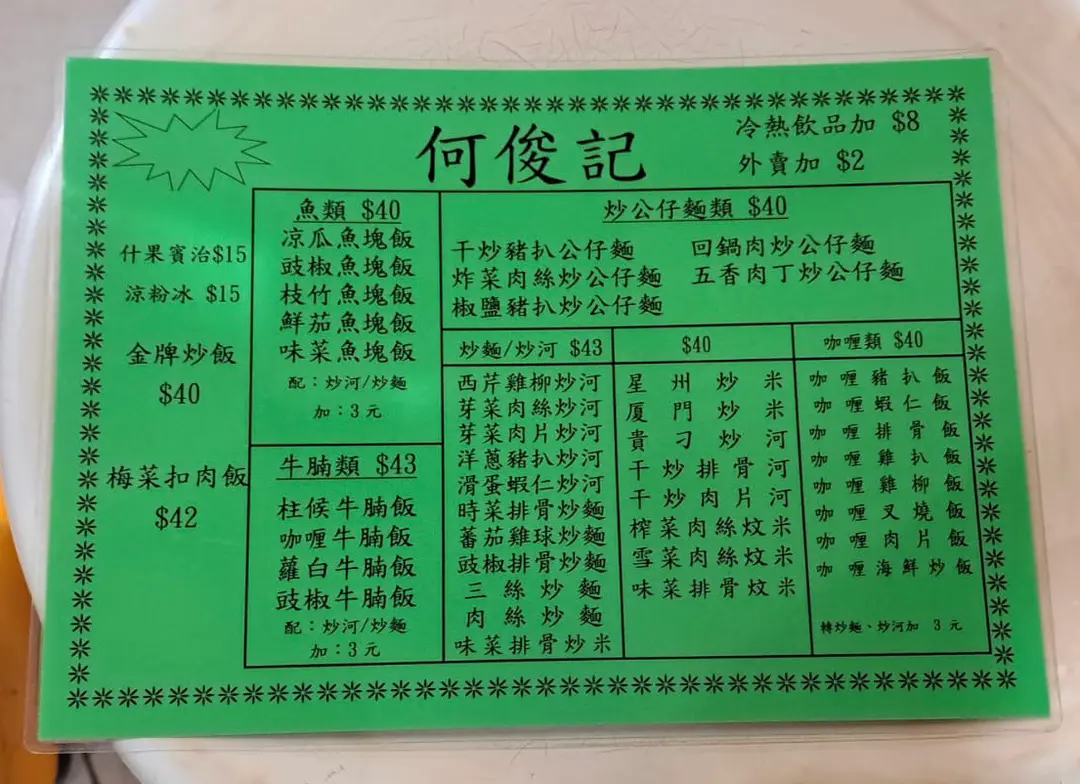 何俊記
冷熱飲品加 $8
外賣加 $2
什果賓治$15
涼粉冰 $15
金牌炒飯
$40
梅菜扣肉飯
$42
魚類 $40
凉瓜魚塊飯
豉椒魚塊飯
枝竹魚塊飯
鮮茄魚塊飯
味菜魚塊飯
配：炒河/炒麵
加：3元
牛腩類 $43
柱候牛腩飯
咖喱牛腩飯
蘿白牛腩飯
豉椒牛腩飯
配：炒河/炒麵
加：3元
炒公仔麵類 $40
干炒豬扒公仔麵
炸菜肉絲炒公仔麵
椒鹽豬扒炒公仔麵
回鍋肉炒公仔麵
五香肉丁炒公仔麵
炒麵/炒河 $43
西芹雞柳炒河
芽菜肉絲炒河
芽菜肉片炒河
洋蔥豬扒炒河
滑蛋蝦仁炒河
時菜排骨炒麵
蕃茄雞球炒麵
豉椒排骨炒麵
三絲炒麵
肉絲炒麵
味菜排骨炒米
$40
星州炒米
厦門炒米
貴刁炒河
干炒排骨河
干炒肉片河
榨菜肉絲炆米
雪菜肉絲炆米
味菜排骨炆米
咖喱類 $40
咖喱豬扒飯
咖喱蝦仁飯
咖喱排骨飯
咖喱雞扒飯
咖喱雞柳飯
咖喱叉燒飯
咖喱肉片飯
咖喱海鮮炒飯
轉炒麵、炒河加 3元